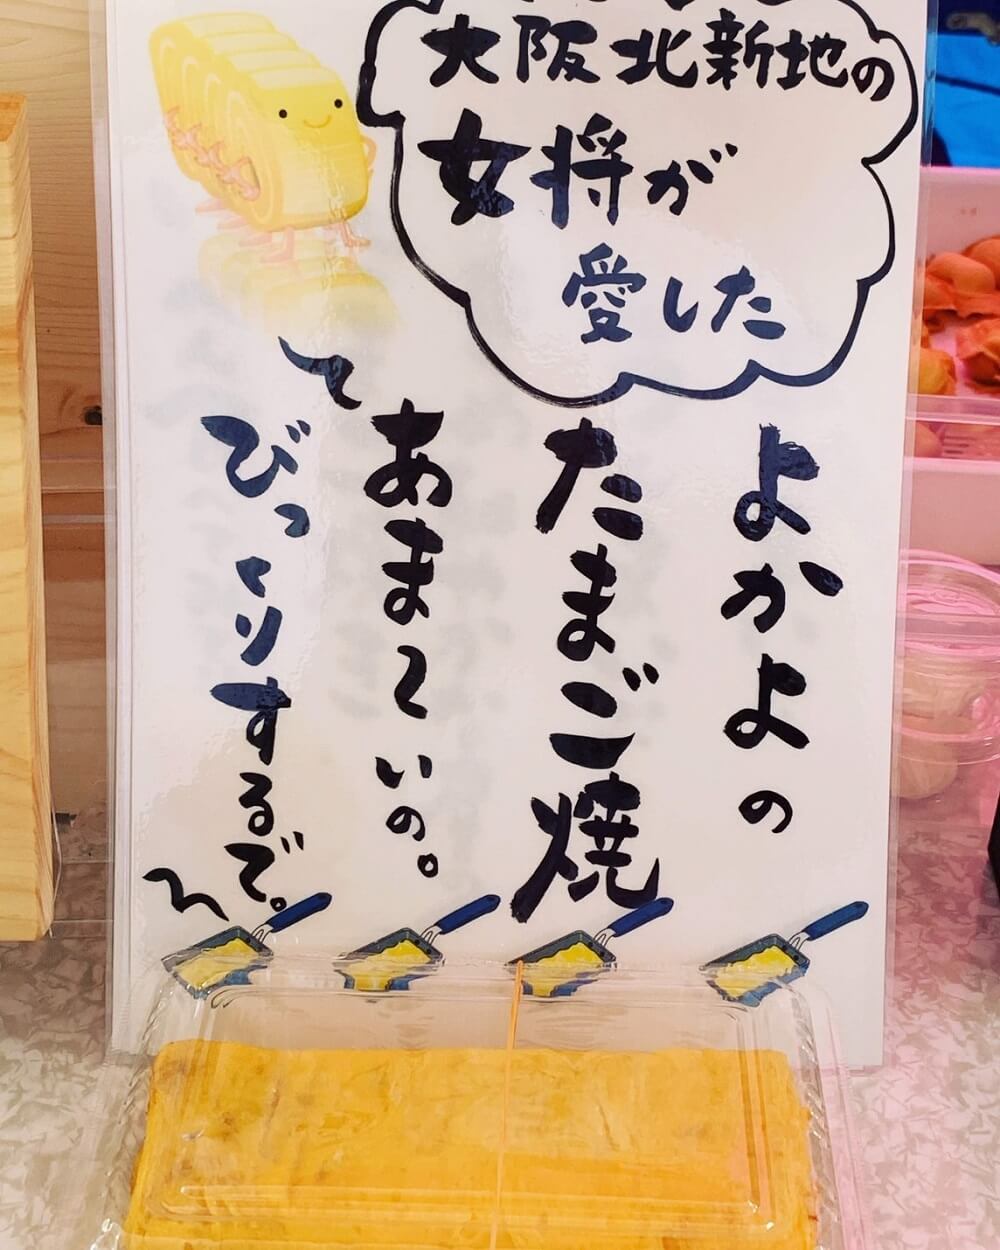 大阪北新地の
女将が
愛した
よかよの
たまご焼
あまくいの。
びっくりするで。